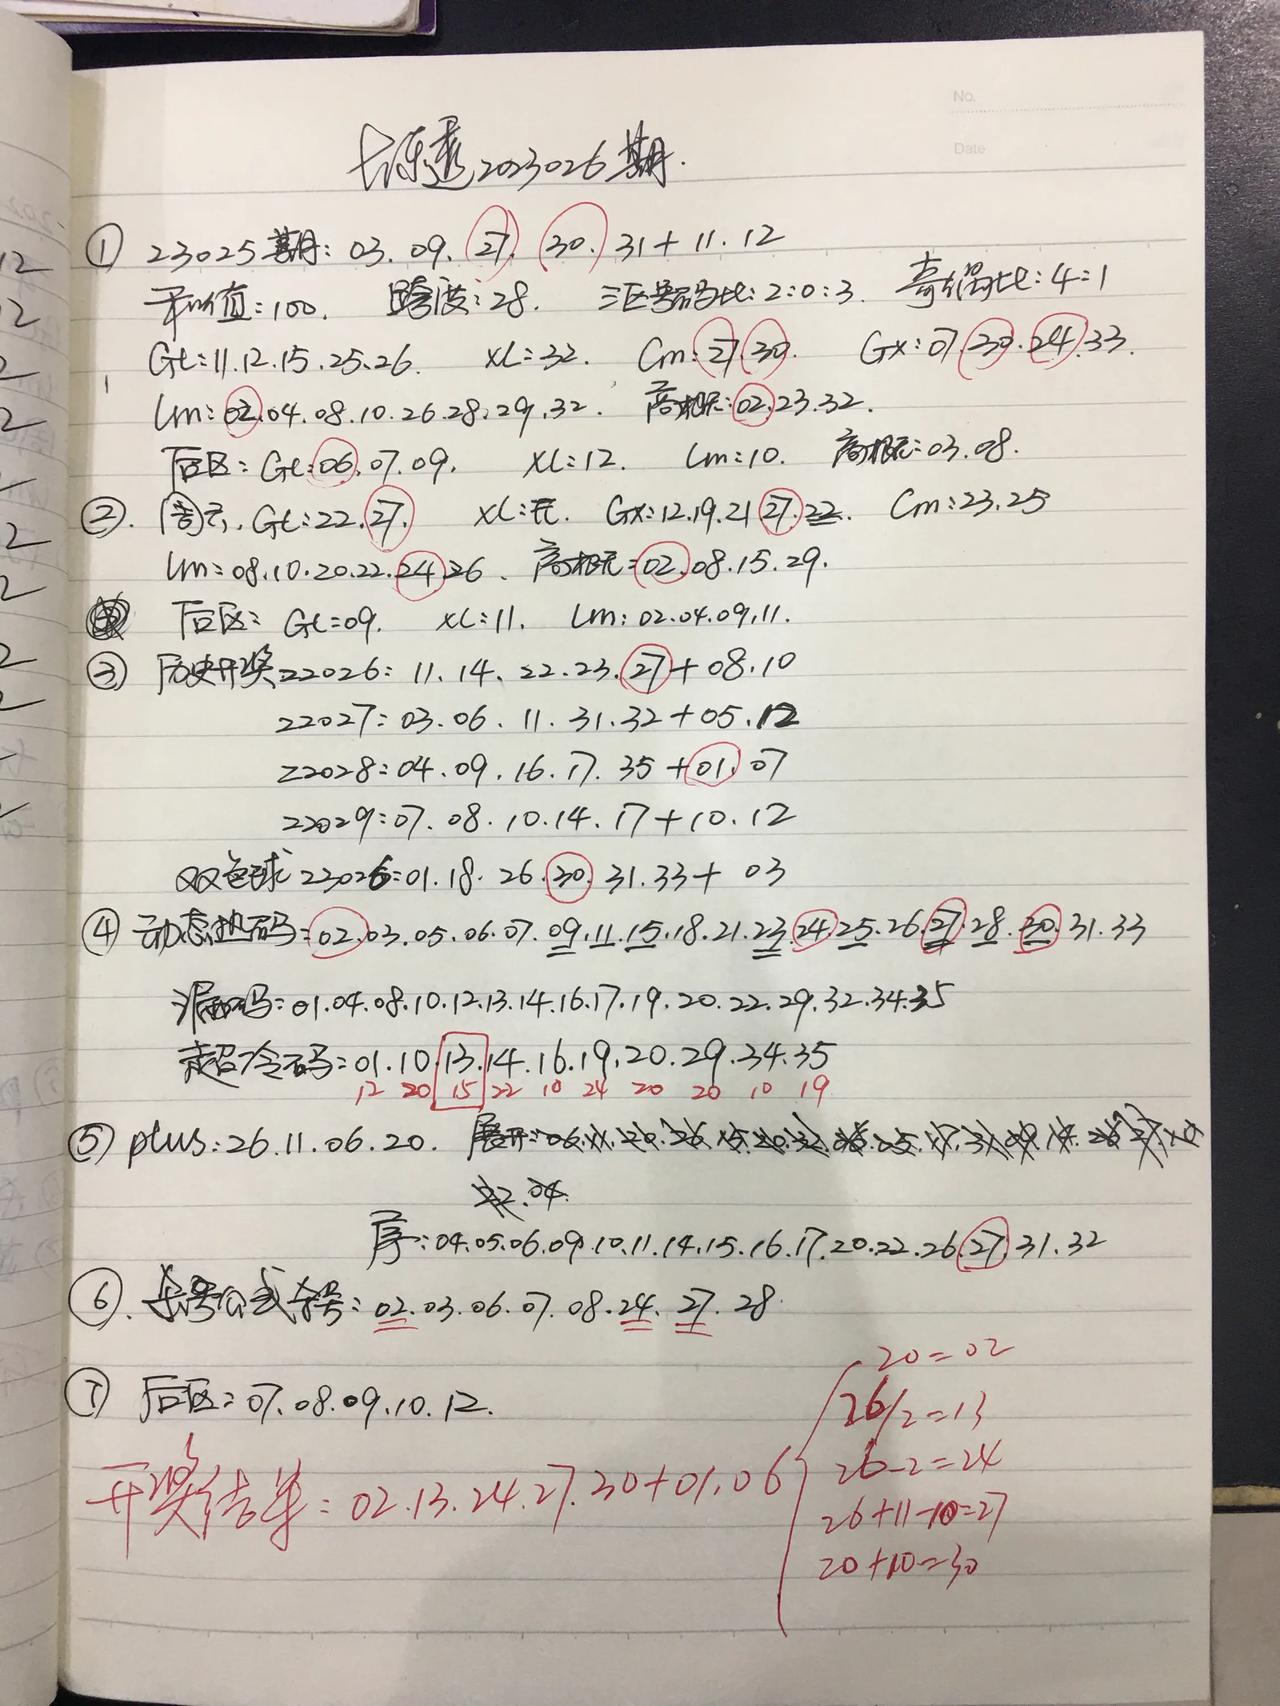 No.
Date
大乐透2023026期.
① 23025期: 03. 09. 27. 30. 31 + 11. 12
和值: 100. 跨度: 28. 三区号码比: 2:0:3. 奇偶比: 4:1
GL: 11. 12. 15. 25. 26. XL: 32. Cm: 27. 30. GX: 07. 23. 24. 33.
Lm: 02. 04. 08. 10. 26. 28. 29. 32. 高概: 02. 23. 32.
后区: GL: 06. 07. 09. XL: 12. Lm: 10. 高概: 03. 08.
②. 周六. GL: 22. 27. XL: 无. GX: 12. 19. 21 27. 22. Cm: 23. 25
Lm: 08. 10. 20. 22. 24. 26. 高概: 02. 08. 15. 29.
后区: GL: 09. XL: 11. Lm: 02. 04. 09. 11.
③ 历史开奖22026: 11. 14. 22. 23. 27 + 08. 10
22027: 03. 06. 11. 31. 32 + 05. 12
22028: 04. 09. 16. 17. 35 + 01. 07
22029: 07. 08. 10. 14. 17 + 10. 12
双色球 23026: 01. 18. 26. 30. 31. 33 + 03
④ 动态热码: 02. 03. 05. 06. 07. 09. 11. 15. 18. 21. 23. 24. 25. 26. 27. 28. 30. 31. 33
漏码: 01. 04. 08. 10. 12. 13. 14. 16. 17. 19. 20. 22. 29. 32. 34. 35
超冷码: 01. 10. 13. 14. 16. 19. 20. 29. 34. 35
12 20 15 22 10 24 20 20 10 19
⑤ plus: 26. 11. 06. 20. 展开:
22. 04.
序: 04. 05. 06. 09. 10. 11. 14. 15. 16. 17. 20. 22. 26. 27. 31. 32
⑥. 杀号公式杀号: 02. 03. 06. 07. 08. 24. 27. 28.
⑦ 后区: 07. 08. 09. 10. 12.
开奖结果: 02. 13. 24. 27. 30 + 01. 06
20=02
26/2=13
26-2=24
26+11-10=27
20+10=30